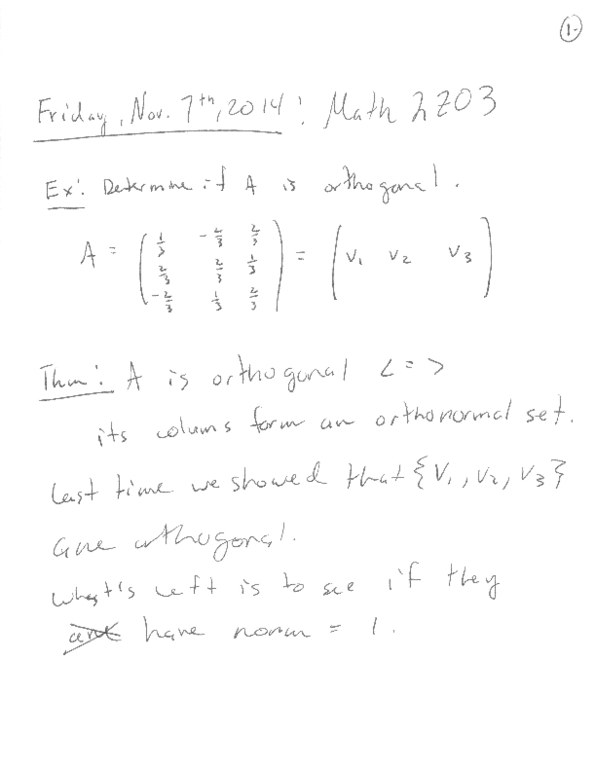 1.
Friday, Nov. 7th, 2014: Math 2Z03
Ex: Determine if A is orthogonal.
A = ( 1/3 -2/3 2/3 ) = ( v1 v2 v3 )
2/3 2/3 1/3
-2/3 1/3 2/3
Thm: A is orthogonal <=>
its colums form an orthonormal set.
Last time we showed that {v1, v2, v3}
are orthogonal.
What's left is to see if they
have norm = 1.